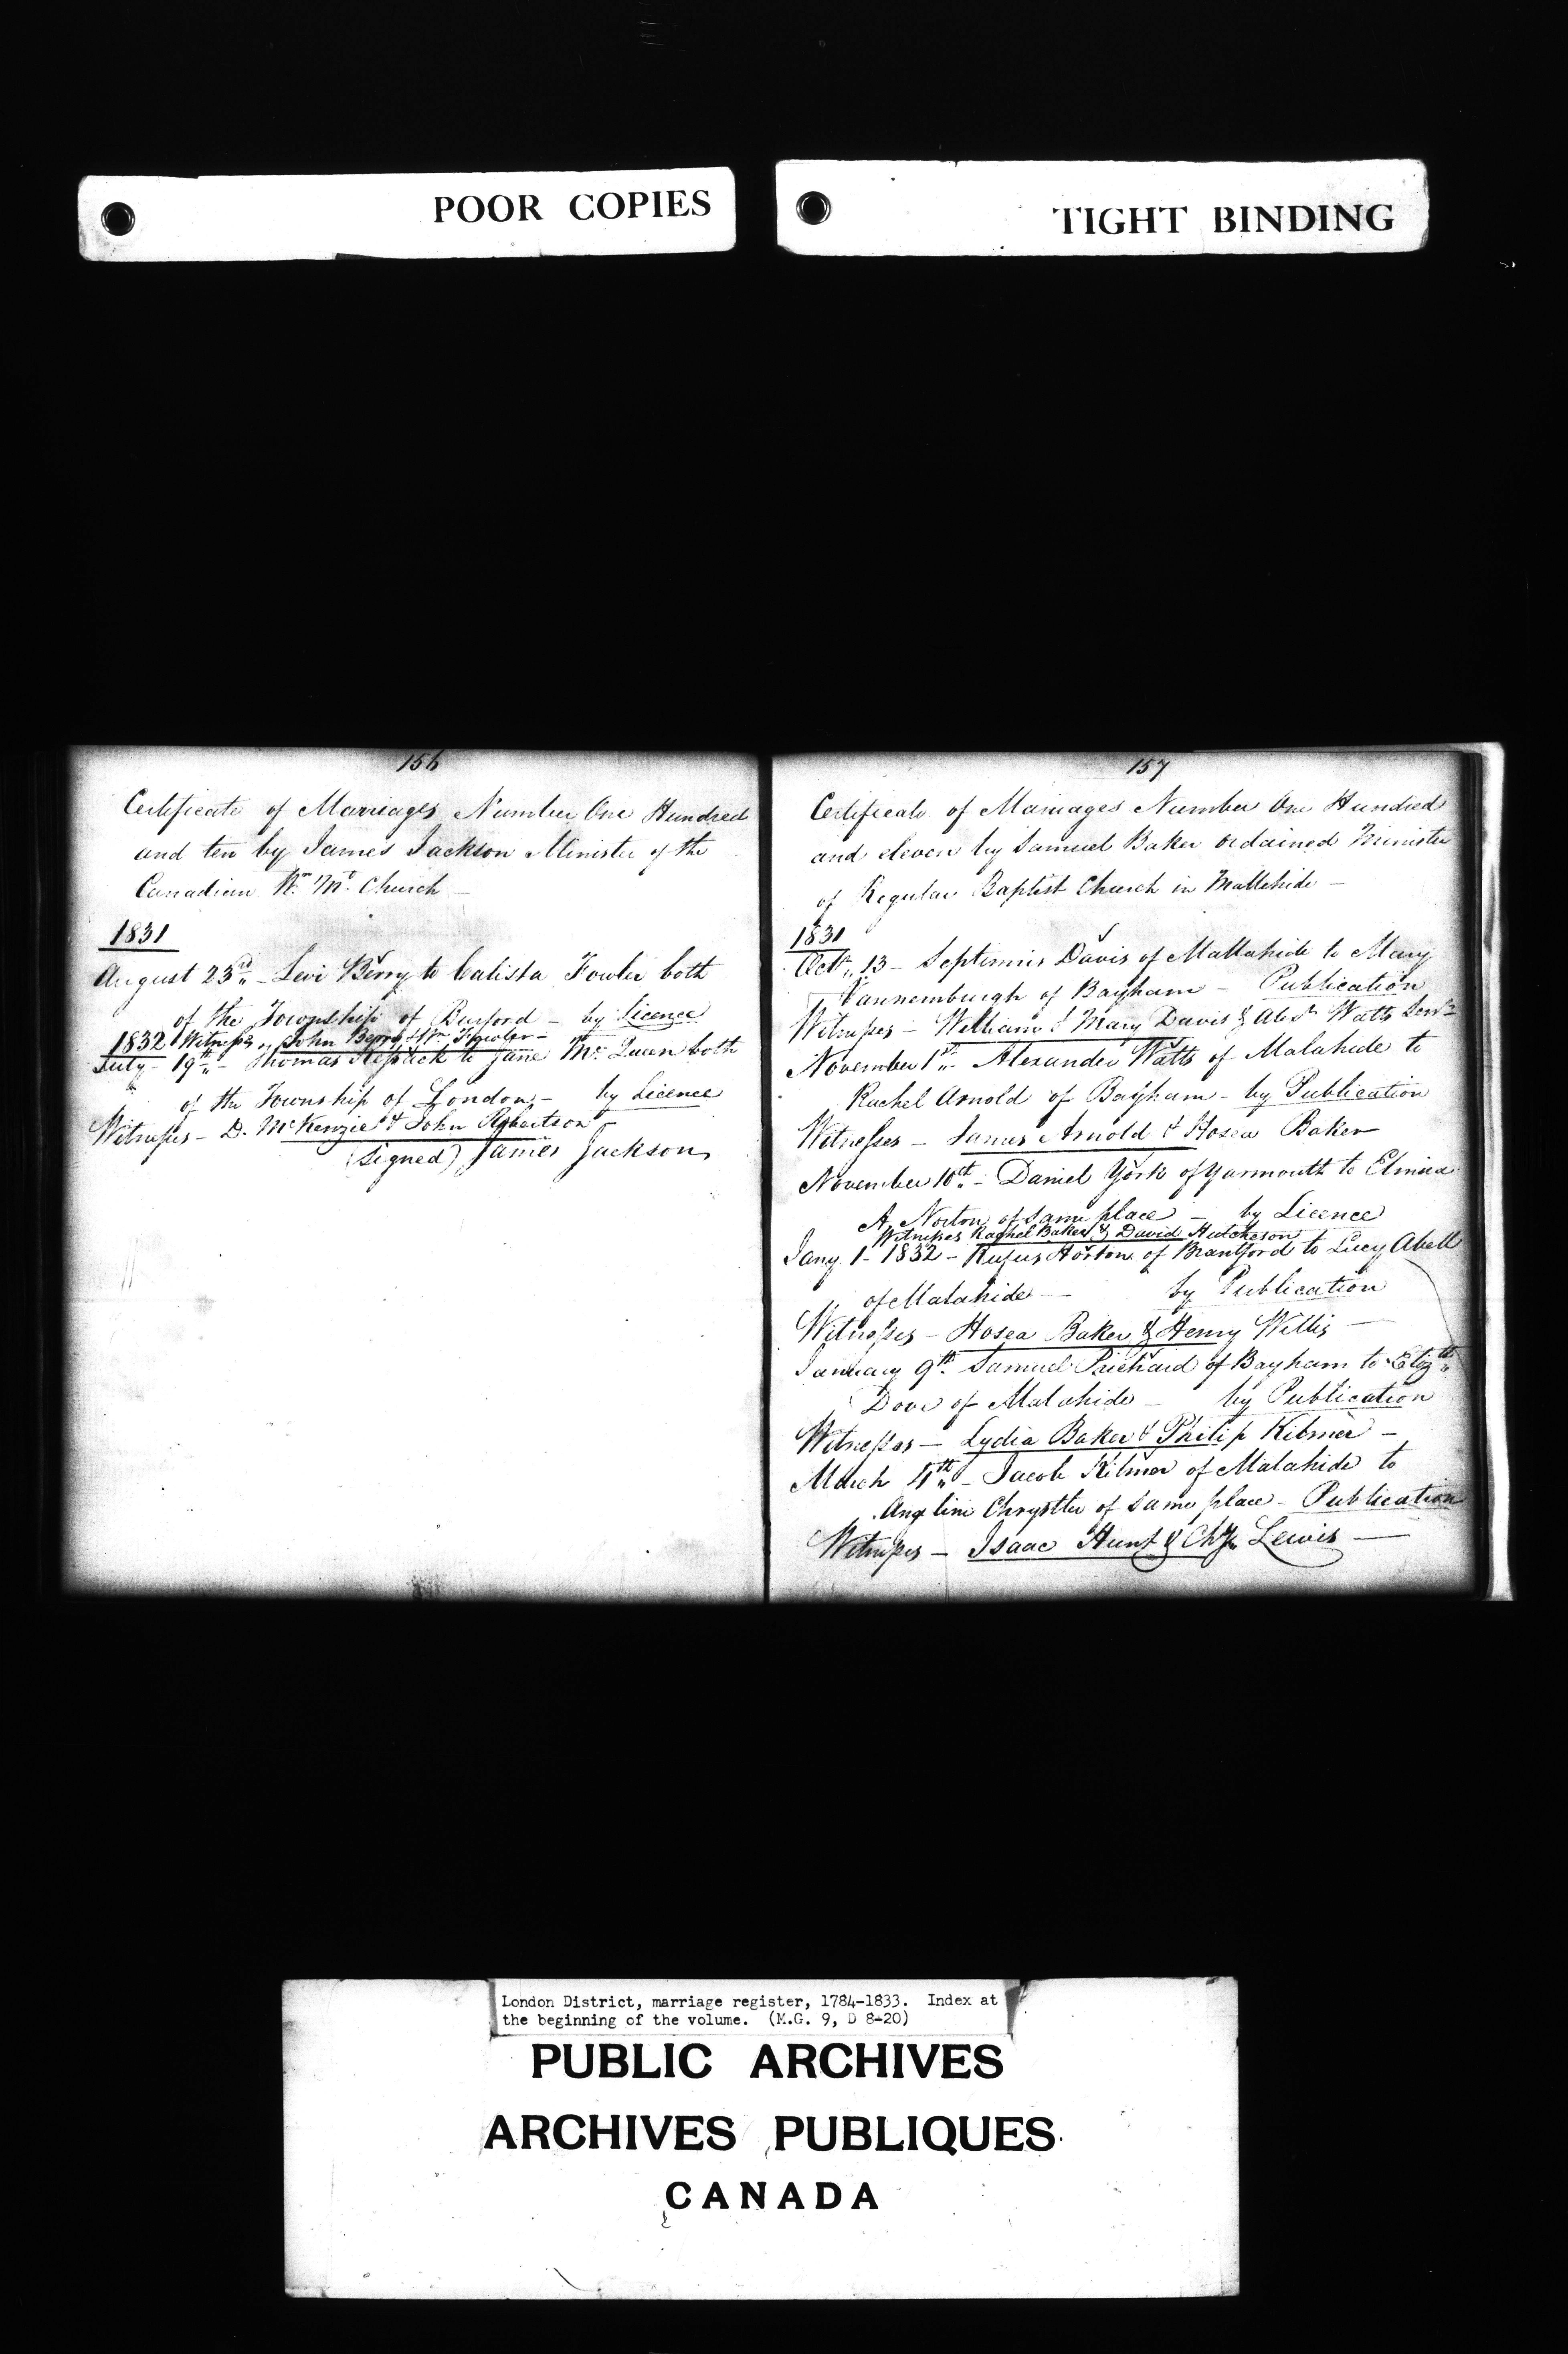 POOR COPIES
TIGHT BINDING
156
Certificate of Marriages Number One Hundred
and ten by James Jackson Minister of the
Canadian Wn Mt. Church —
1831
August 23rd - Levi Berry to Calista Fowler both
of the Township of Burford - by Licence
1832 Witnesses John Berry & Wm Fowler -
July - 19th - Thomas to Jane Mc Queen both
of the Township of London - by Licence
Witnesses - D. McKenzie & John Robertson -
(Signed) James Jackson
157
Certificate of Marriages Number One Hundred
and eleven by Samuel Baker ordained Minister
of Regular Baptist Church in Mallehide -
1831
Octr 13 - Septimius Davis of Mallahide to Mary
Vannemburgh of Bayham - Publication
Witnesses - William & Mary Davis & Watts Senr
November 1st - Alexander Watts of Malahide to
Rachel Arnold of Bayham - by Publication
Witnesses - James Arnold & Hosea Baker
November 10th - Daniel York of Yarmouth to Elmira
A. Norton of same place - by Licence
Witnesses Rachel Baker & David Hutcheson
Jany 1 - 1832 - Rufus Horton of Brantford to Lucy Abell
of Malahide - by Publication
Witnesses - Hosea Baker & Henry Willis -
January 9th Samuel Prichard of Bayham to Elizth
Dove of Malahide - by Publication
Witnesses - Lydia Baker & Philip Kilmer -
March 4th - Jacob Kilmer of Malahide to
Angeline Chrystler of same place - Publication
Witnesses - Isaac Hunt & Lewis -
London District, marriage register, 1784-1833. Index at
the beginning of the volume. (M.G. 9, D 8-20)
PUBLIC ARCHIVES
ARCHIVES PUBLIQUES
CANADA